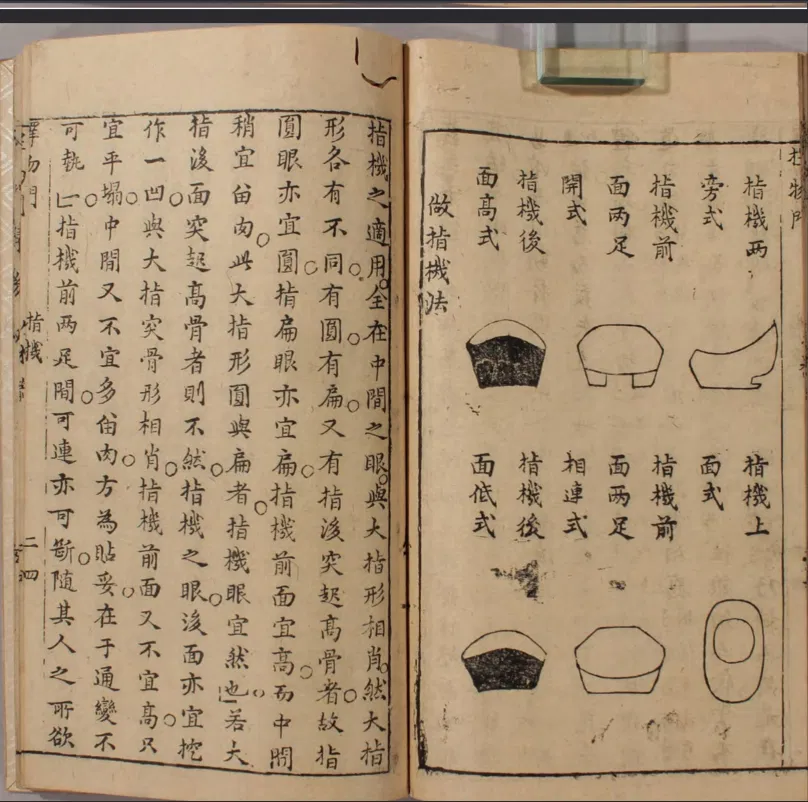 擇物門
指機两
旁式
指機前
面两足
開式
指機後
面高式
指機上
面式
指機前
面两足
相連式
指機後
面低式
做指機法
指機之適用全在中間之眼與大指形相肖然大指
形各有不同有圓有扁又有指後突起高骨者故指
圓眼亦宜圓指扁眼亦宜扁指機前面宜高而中間
稍宜留肉此大指形圓與扁者指機眼宜然也若大
指後面突起高骨者則不然指機之眼後面亦宜挖
作一凹與大指突骨形相肖指機前面又不宜高只
宜平塌中間又不宜多留肉方為貼妥在于通變不
可執一指機前两足間可連亦可斷隨其人之所欲
擇物門 指機 二四